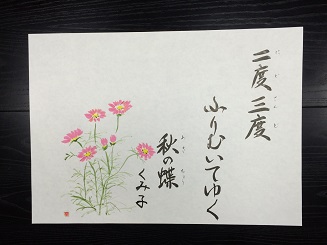 二度三度
ふりむいてゆく
秋の蝶
くみ子